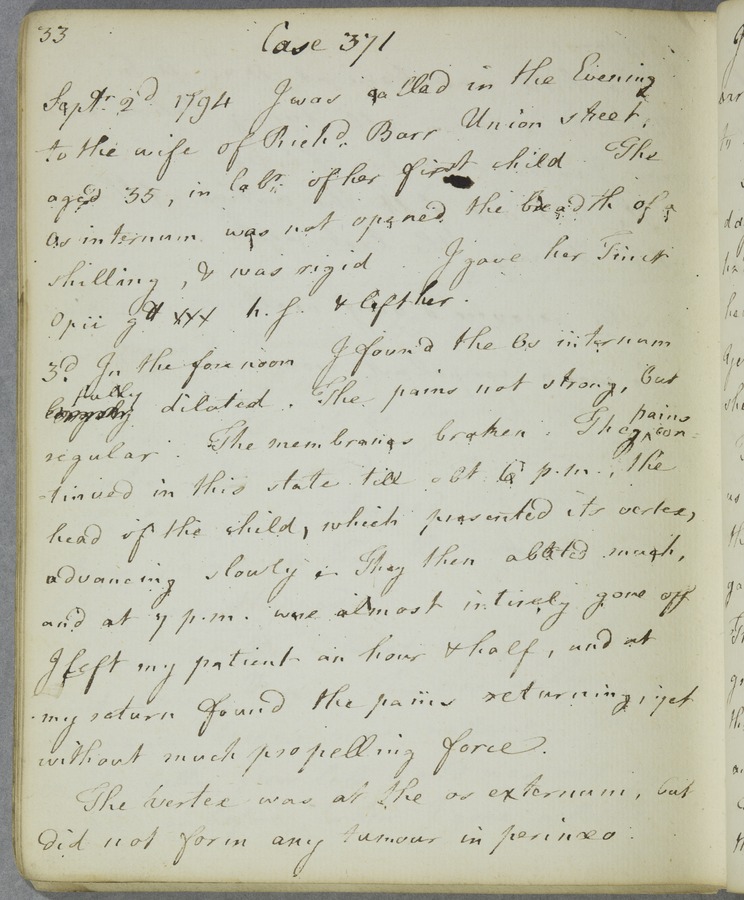 33
Case 371
Septr. 2d 1794 I was called in the Evening
to the wife of Richd. Barr Union street,
aged 35, in labr. of her first child The
os internum was not opened the breadth of a
shilling, & was rigid. I gave her Tinct
Opii gtt xxx h. s. & left her.
3d. In the forenoon I found the Os internum
fully
dilated. The pains not strong, but
regular. The membranes broken. The pains con=
=tinued in this state till abt 6 p.m., the
head of the child, which presented its vertex,
advancing slowly. They then abated much,
and at 7 p.m. were almost intirely gone off
I left my patient an hour & half, and at
my return found the pains returning, yet
without much propelling force.
The vertex was at the os externum, but
did not form any tumour in perinæo.